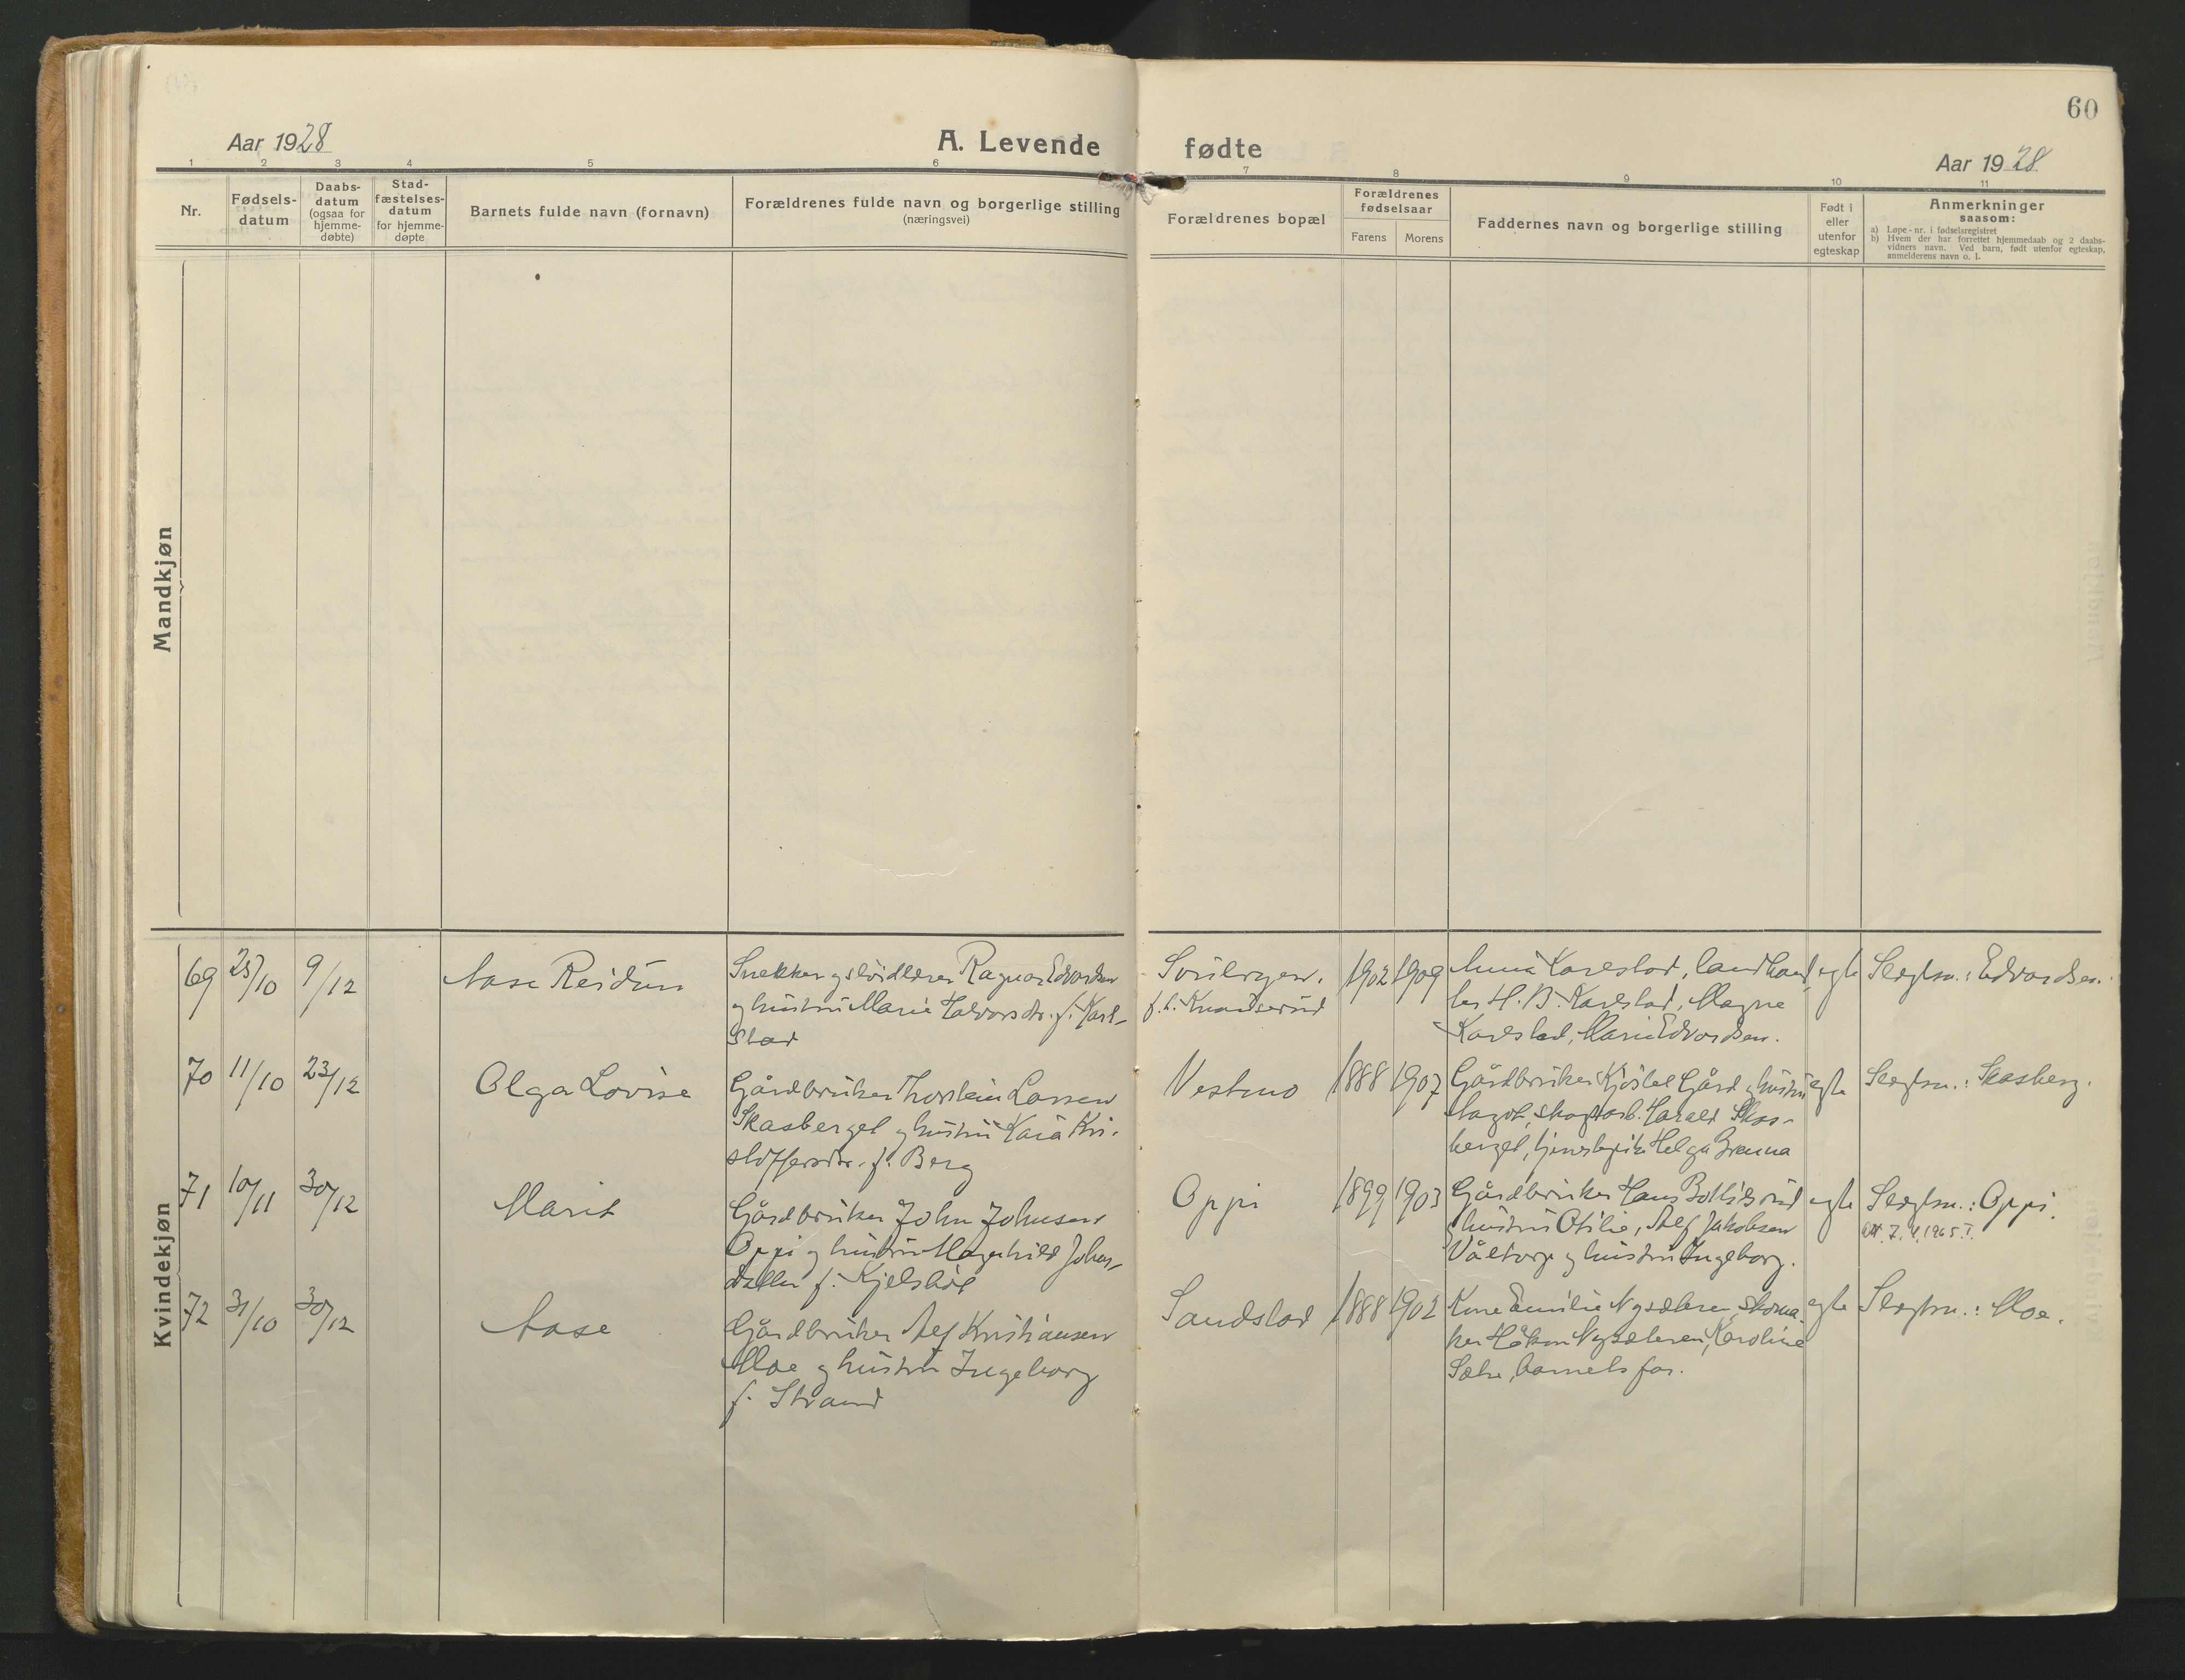 60
Aar 1928
A. Levende fødte
Aar 1928
1 2 3 4 5 6 7 8 9 10 11
Nr.
Fødsels-
datum
Daabs-
datum
(ogsaa for
hjemme-
døbte)
Stad-
fæstelses-
datum
for hjemme-
døpte
Barnets fulde navn (fornavn)
Forældrenes fulde navn og borgerlige stilling
(næringsvei)
Forældrenes bopæl
Forældrenes
fødselsaar
Farens Morens
Faddernes navn og borgerlige stilling
Født i
eller
utenfor
egteskap
Anmerkninger
saasom:
a) Løpe-nr. i fødselsregistret
b) Hvem der har forrettet hjemmedaab og 2 daabs-
vidners navn. Ved barn, født utenfor egteskap,
anmelderens navn o. l.
Mandkjøn
Kvindekjøn
69 25/10 9/12 Aase Reidun
Snekker og sløidlærer Ragnar Edvardsen
og hustru Marie Halvorsdtr. f. Karl-
stad
f.t. Knardserud
1902 1909
Anna Karlstad, landhand-
ler H. B. Karlstad, Magne
Karlstad, Marie Edvardsen.
egte
Slegtsn.: Edvardsen.
70 11/10 23/12 Olga Lovise
Gårdbruker Thorstein Larsen
Skasberget og hustru Kaia Kri-
stoffersdtr. f. Berg
Vestmo
1888 1907
Gårdbruker Kjøstel Gård og hustru
Magot, skogsarb. Harald Skas-
berget, tjenestepike Helga Grenna
egte
Slegtsn.: Skasberg.
71 10/11 30/12 Marit
Gårdbruker John Johnsen
Oppi og hustru Magnhild Johns-
datter f. Kjelsbøl
Oppi
1899 1903
Gårdbruker Hans Bottilsrud
og hustru Otilie, Alf Jakobsen
Våltorp og hustru Ingeborg.
egte
Slegtsn.: Oppi.
Att. 7.4.1965. T.
72 31/10 30/12 Aase
Gårdbruker Alf Kristiansen
Moe og hustru Ingeborg
f. Strand
Sandstad
1888 1902
Kone Emilie Nysæteren, skoma-
ker Håkon Nysæteren, Karoline
Sætre, barnets far.
egte
Slegtsn.: Moe.